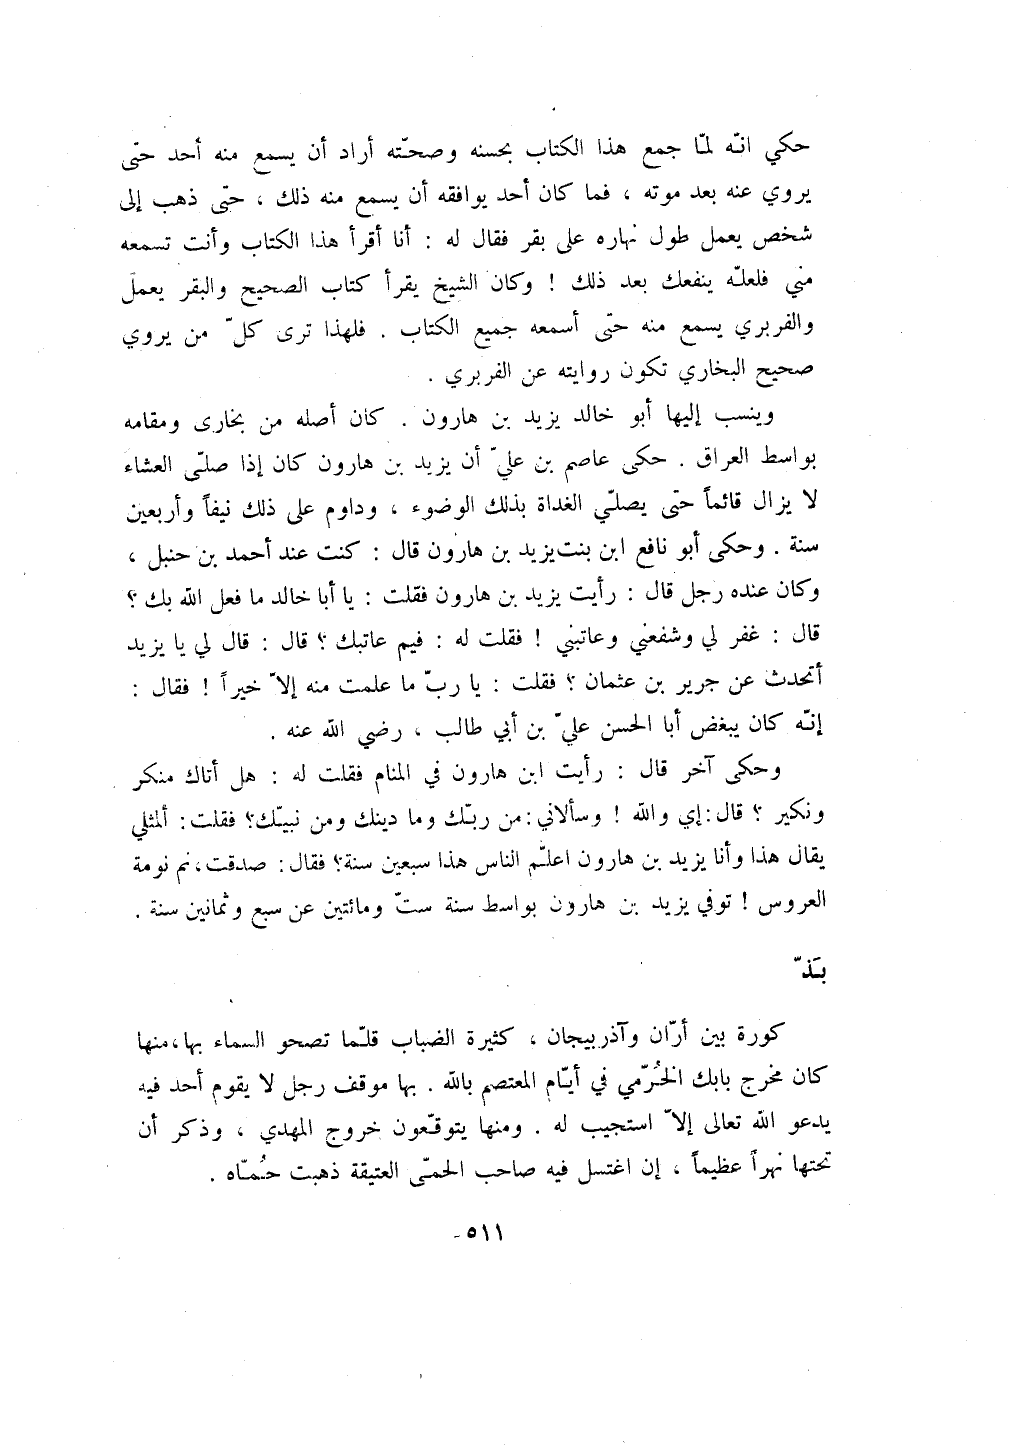 حكي انّه لمّا جمع هذا الكتاب بحسنه وصحّته أراد أن يسمع منه أحد حتّى
يروي عنه بعد موته ، فما كان أحد يوافقه أن يسمع منه ذلك ، حتّى ذهب إلى
شخص يعمل طول نهاره على بقر فقال له : أنا أقرأ هذا الكتاب وأنت تسمعه
مني فلعلّه ينفعك بعد ذلك ! وكان الشيخ يقرأ كتاب الصحيح والبقر يعمل
والفربري يسمع منه حتّى أسمعه جميع الكتاب . فلهذا ترى كلّ من يروي
صحيح البخاري تكون روايته عن الفربري .
وينسب إليها أبو خالد يزيد بن هارون . كان أصله من بخارى ومقامه
بواسط العراق . حكى عاصم بن عليّ أن يزيد بن هارون كان إذا صلّى العشاء
لا يزال قائماً حتّى يصلّي الغداة بذلك الوضوء ، وداوم على ذلك نيفاً وأربعين
سنة . وحكى أبو نافع ابن بنت يزيد بن هارون قال : كنت عند أحمد بن حنبل ،
وكان عنده رجل قال : رأيت يزيد بن هارون فقلت : يا أبا خالد ما فعل الله بك ؟
قال : غفر لي وشفعني وعاتبني ! فقلت له : فيم عاتبك ؟ قال : قال لي يا يزيد
أتحدث عن جرير بن عثمان ؟ فقلت : يا ربّ ما علمت منه إلاّ خيراً ! فقال :
إنّه كان يبغض أبا الحسن عليّ بن أبي طالب ، رضي الله عنه .
وحكى آخر قال : رأيت ابن هارون في المنام فقلت له : هل أتاك منكر
ونكير ؟ قال : إي والله ! وسألاني : من ربّك وما دينك ومن نبيّك؟ فقلت : ألمثلي
يقال هذا وأنا يزيد بن هارون اعلّم الناس هذا سبعين سنة؟ فقال : صدقت ، نم نومة
العروس ! توفي يزيد بن هارون بواسط سنة ستّ ومائتين عن سبع وثمانين سنة .
بَذّ
كورة بين أرّان وآذربيجان ، كثيرة الضباب قلّما تصحو السماء بها ، منها
كان مخرج بابك الخُرّمي في أيّام المعتصم بالله . بها موقف رجل لا يقوم أحد فيه
يدعو الله تعالى إلاّ استجيب له . ومنها يتوقّعون خروج المهدي ، وذكر أن
تحتها نهراً عظيماً ، إن اغتسل فيه صاحب الحمّى العتيقة ذهبت حُمّاه .
٥١١